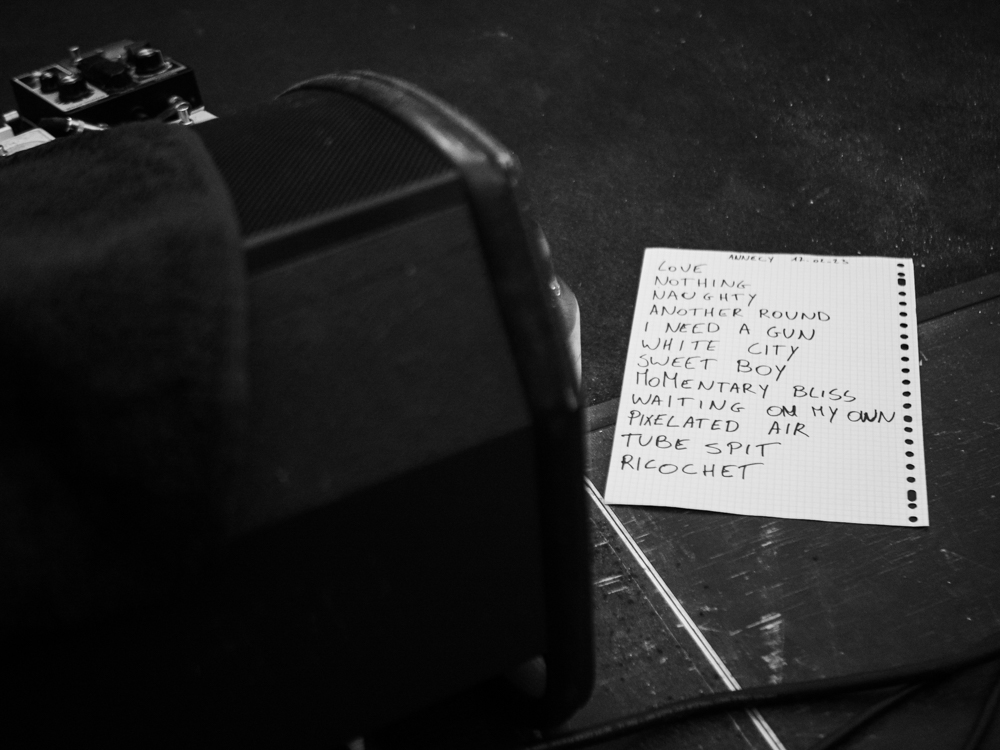 ANNECY
LOVE
NOTHING
NAUGHTY
ANOTHER ROUND
I NEED A GUN
WHITE CITY
SWEET BOY
MOMENTARY BLISS
WAITING ON MY OWN
PIXELATED AIR
TUBE SPIT
RICOCHET